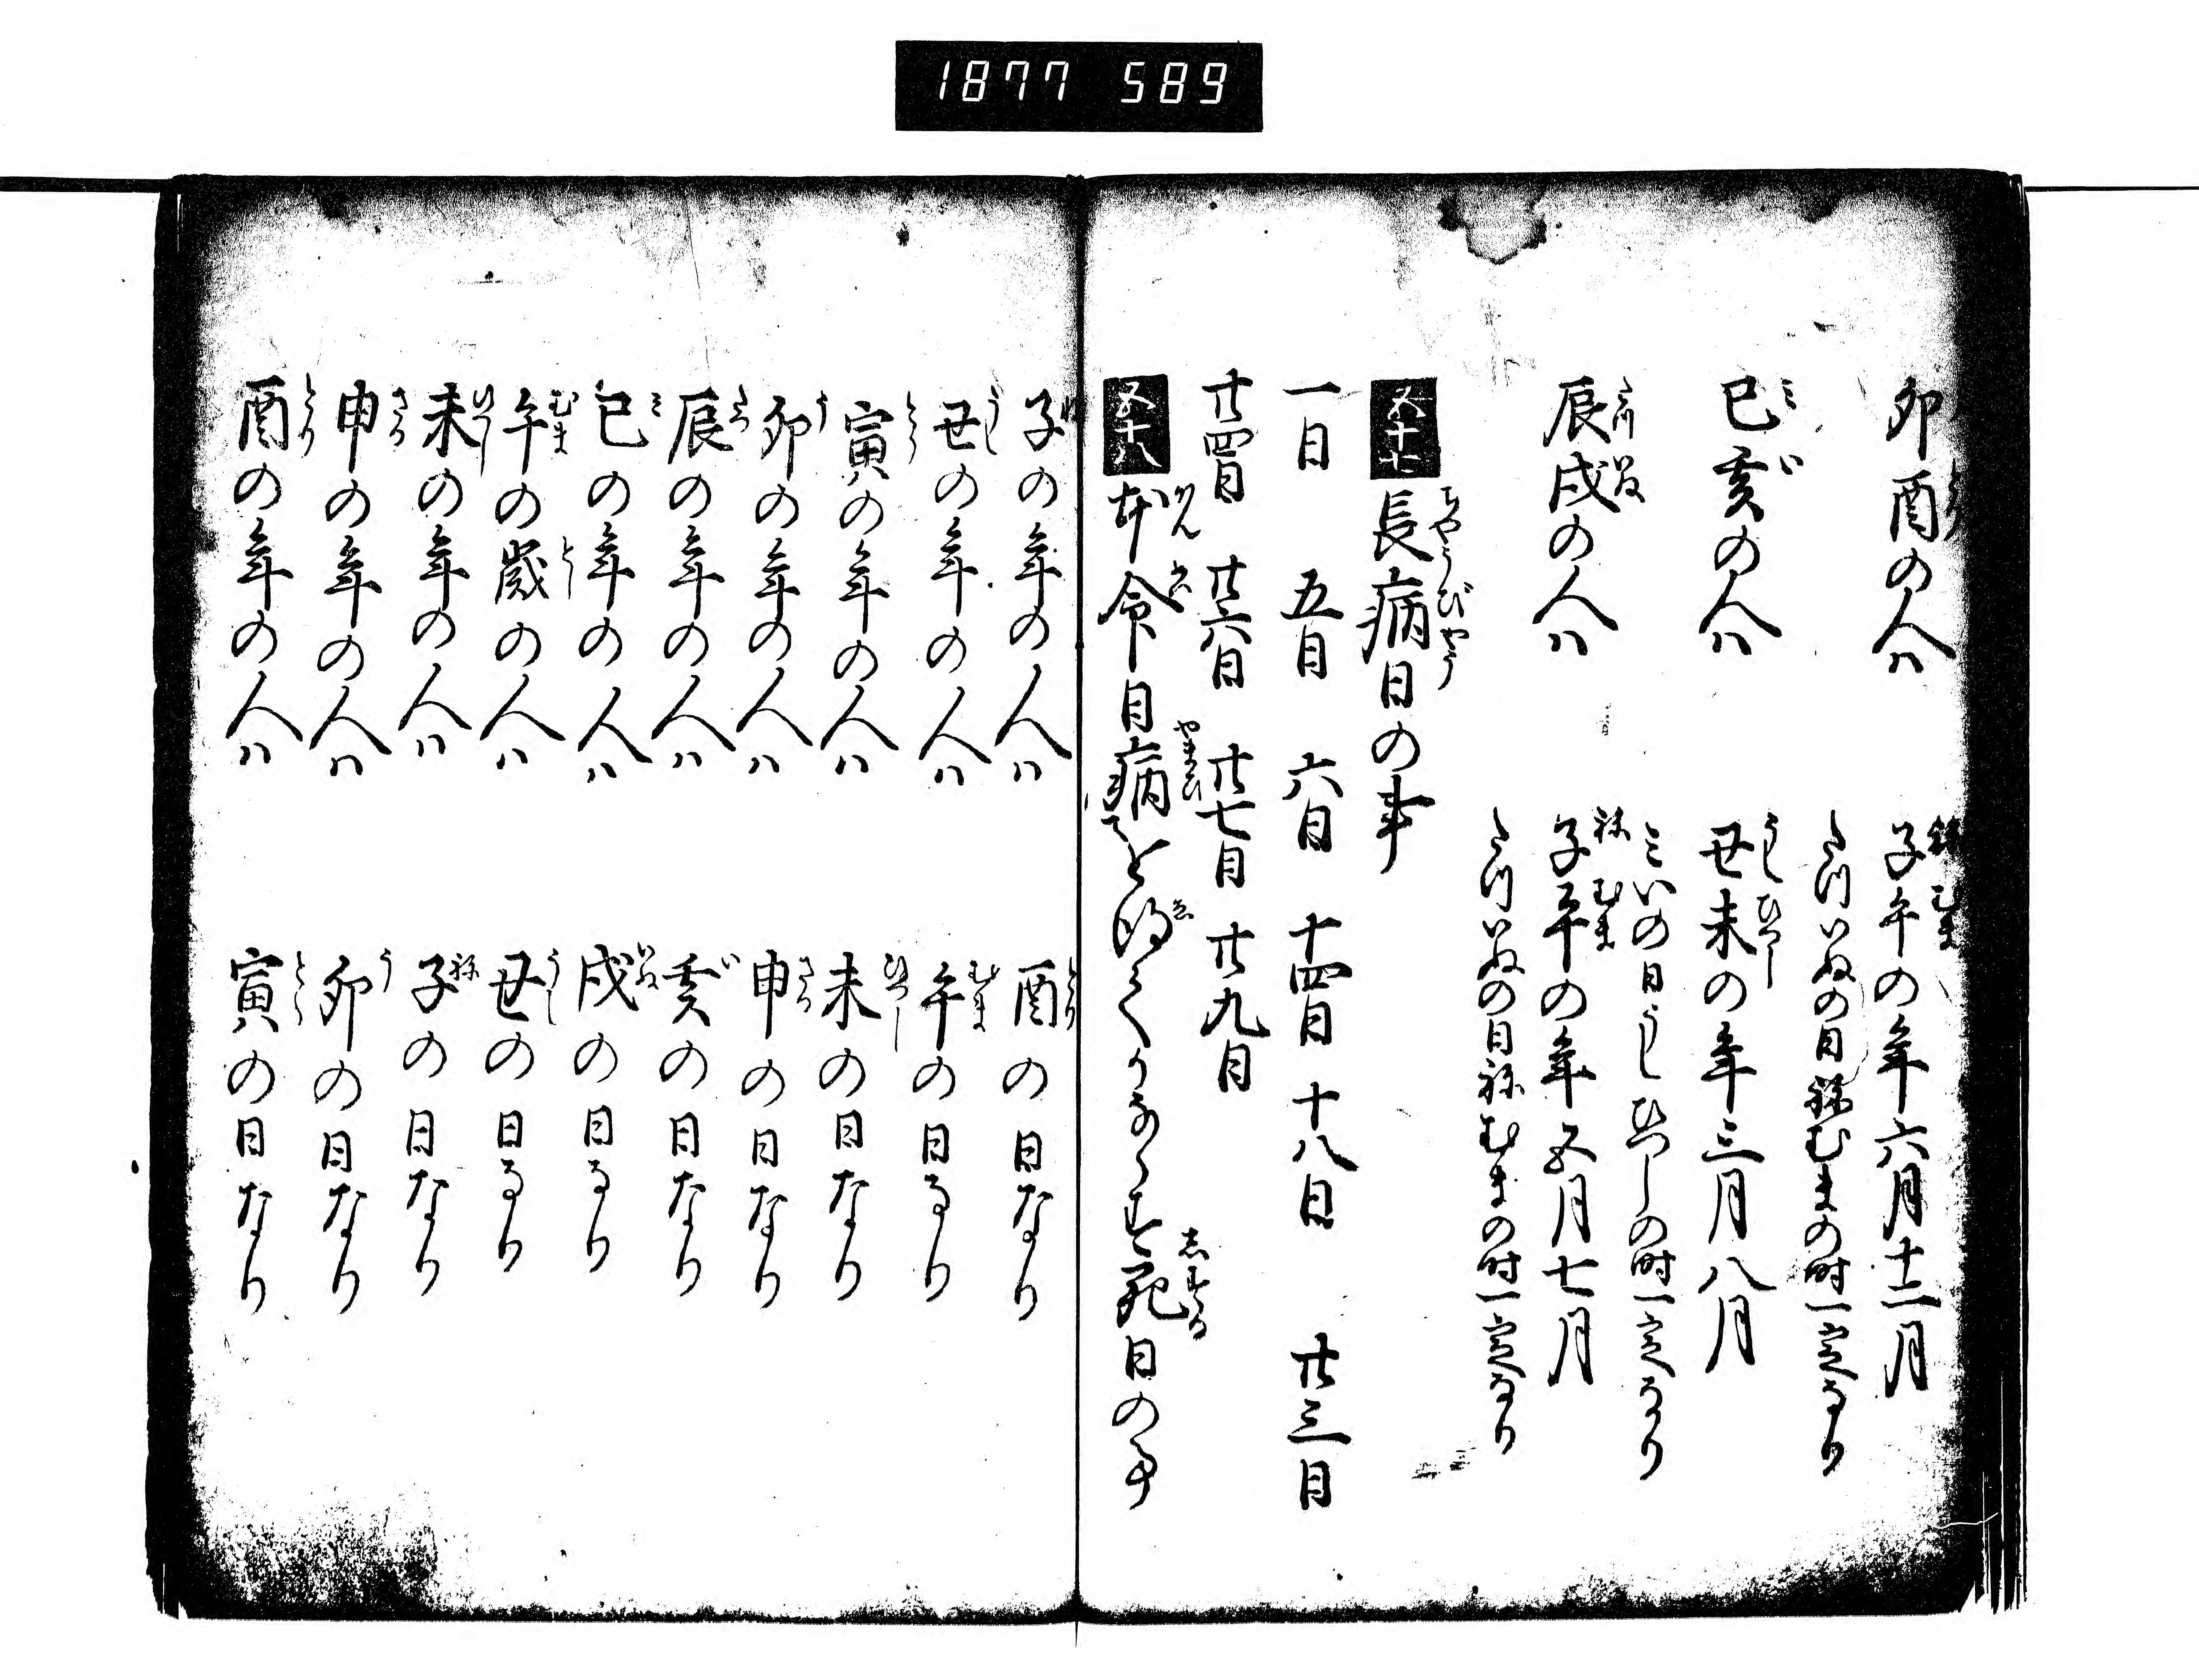 1877 589
卯酉の人ハ 子午の年六月十二月
たついぬの日ねむまの時一定なり
巳亥の人ハ 丑未の年三月八月
ミいの日うしひつしの時一定なり
辰戌の人ハ 子午の年五月七月
たついぬの日ねむまの時一定なり
五十七 長病日の事
一日 五日 六日 十四日 十八日 廿三日
廿四日 廿六日 廿七日 廿九日
五十八 命日病を得てかならす死日の事
子の年の人ハ 酉の日なり
丑の年の人ハ 午の日なり
寅の年の人ハ 未の日なり
卯の年の人ハ 申の日なり
辰の年の人ハ 亥の日なり
巳の年の人ハ 戌の日なり
午の歳の人ハ 丑の日なり
未の年の人ハ 子の日なり
申の年の人ハ 卯の日なり
酉の年の人ハ 寅の日なり